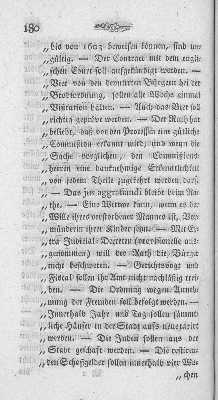 180
„bis von 1603 beweisen können, sind un-
„gültig. — Der Contract mit dem engli-
„schen Court soll aufgekündigt werden. —
„Vier von den beeideten Bürgern bei der
„Brodtordnung, sollen alle Woche einmal
„Visitation halten. — Auch das Bier soll
„richtig geprüft werden. — Der Rath hat
„beliebt, daß vor den Processen eine gütliche
„Commission erkannt wird, und wenn die
„Sache verglichen, den Commissions-
„herren eine danknehmige Erkentlichkeit
„von jedem Theile zugekehrt werden darf.
„— Das jus aggratiandi bleibt beim Ra-
„the. — Eine Wittwe kann, wenn es da
„Wille ihres verstorbenen Mannes ist, Vor-
„münderin ihrer Kinder seyn. — Mit Ex-
„tra Judicial-Decreten (provisionelle aus-
„genommen) will der Rath die Bürger
„nicht beschweren. — Gerichtsvögt und
„Fiscal sollen ihr Amt nicht nachläßig trei-
„ben. — Die Ordnung wegen Anneh-
„mung der Fremden soll befolgt werden. —
„Innerhalb Jahr und Tag sollen sämmt-
„liche Häuser in der Stadt aufs neue taxirt
„werden. — Die Juden sollen aus der
„Stadt geschaft werden. — Die restiren-
„den Schoßgelder sollen innerhalb vier Wo-
„chen